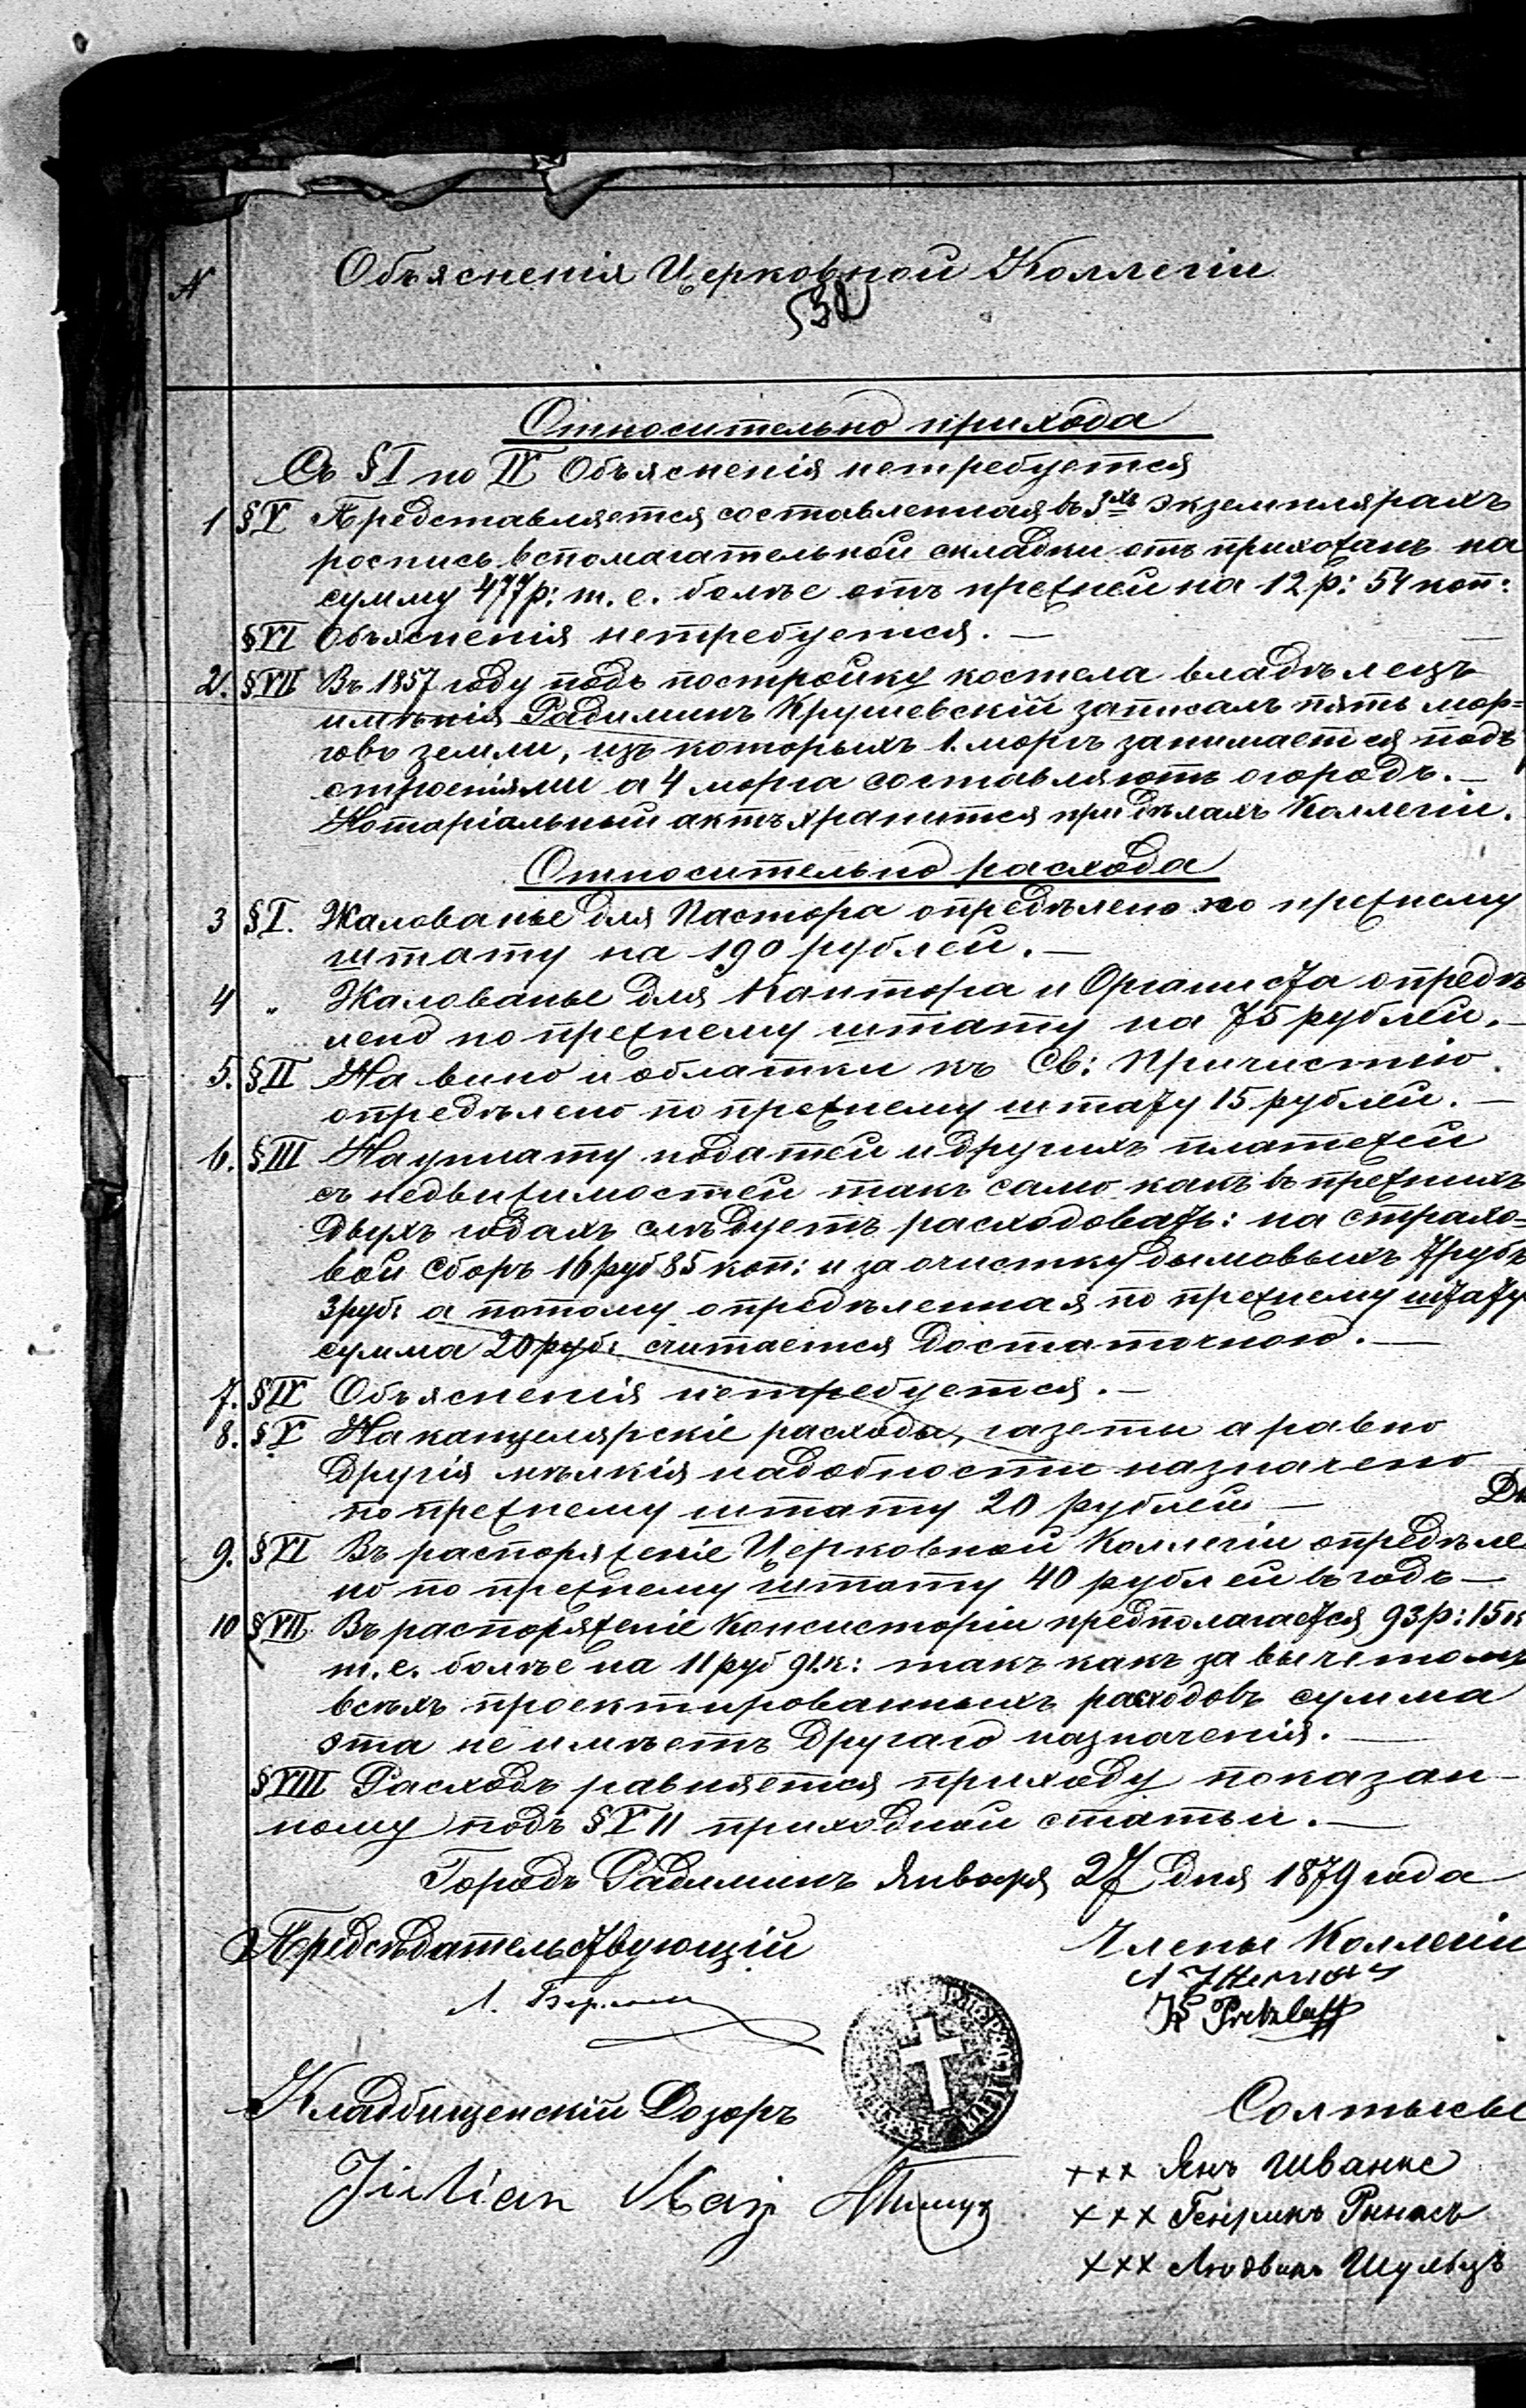 N Объясненія Церковной Коллегіи
532
Относительно прихода
Съ § I по IV Объясненія нетребуется
1 § V Представляется составленная въ 3хъ экземплярахъ
роспись вспомагательной складки отъ прихожанъ на
сумму 477 р: т. е. болѣе отъ прежней на 12 р: 54 коп:
§ VI Объясненія нетребуется. —
2. § VII Въ 1857 году подъ постройку костела владѣлецъ
имѣнія Радиминъ Крушевскій записалъ пять мор=
говъ земли, изъ которыхъ 1. моргъ занимается подъ
строеніями а 4 морга составляютъ огородъ. —
Нотаріальный актъ хранится при дѣлахъ Коллегіи.
Относительно расхода
3 § I. Жалованье для Пастора опредѣлено по прежнему
штату на 190 рублей. —
4 „ Жалованье для Кантора и Органиста опредѣ
лено по прежнему штату на 75 рублей. —
5. § II На вино и облатки къ Св: Причистію
опредѣлено по прежнему штату 15 рублей. —
6. § III На уплату податей и другихъ платежей
съ недвижимостей такъ само какъ въ прежнихъ
двухъ годахъ слѣдуетъ расходовать: на страхо=
вой сборъ 16 руб 85 коп: и за очистку дымовыхъ трубъ
3 руб: а потому опредѣленная по прежнему штату
сумма 20 руб: считается достаточною. —
7. § IV Объясненія нетребуется. —
8. § V На канцелярскіе расходы, газеты а равно
другія мѣлкія надобности назначено
по прежнему штату 20 рублей —
9. § VI Въ распоряженіе Церковной Коллегіи опредѣле
но по прежнему штату 40 рублей въ годъ —
10 § VII Въ распоряженіе Консисторіи предполагается 93 р: 15 к
т. е. болѣе на 11 руб 91. к: такъ какъ за вычетомъ
всѣхъ проектированныхъ расходовъ сумма
эта не имѣетъ другаго назначенія. —
§ VIII Расходъ равняется приходу показан-
ному подъ § VII приходной статьи. —
Городъ Радиминъ Января 27 дня 1879 года
Предсѣдательствующій Члены Коллегіи
K Pretzlaff
Кладбищенскій Дозоръ Солтысы
Julian May
+++ Янъ Шванке
+++ Генрикъ Ринасъ
+++ Людвикъ Шульцъ